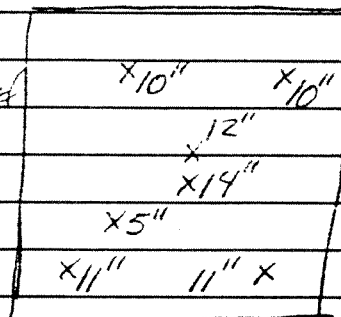 x10" x10"
12"
x
x14"
x5"
x11" 11" x